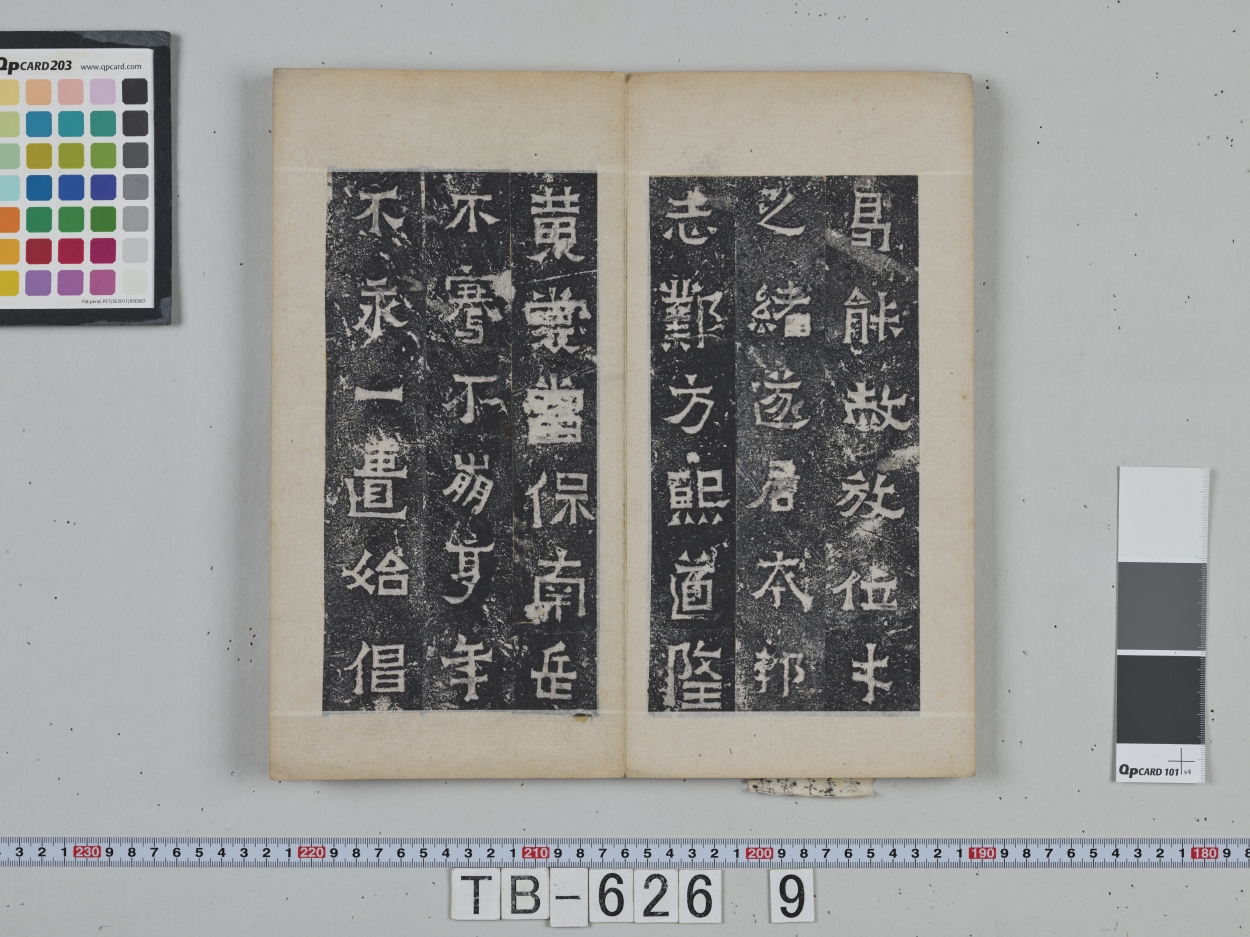 曷能赦放位才
之緒遂居本邦
志鄴方熙道隆
黃裳當保南岳
不騫不崩享年
不永一匱始倡
QPCARD 203 www.qpcard.com
QPCARD 101 v4
3 2 1 230 9 8 7 6 5 4 3 2 1 220 9 8 7 6 5 4 3 2 1 210 9 8 7 6 5 4 3 2 1 200 9 8 7 6 5 4 3 2 1 190 9 8 7 6 5 4 3 2 1 180 9 8
TB-626 9